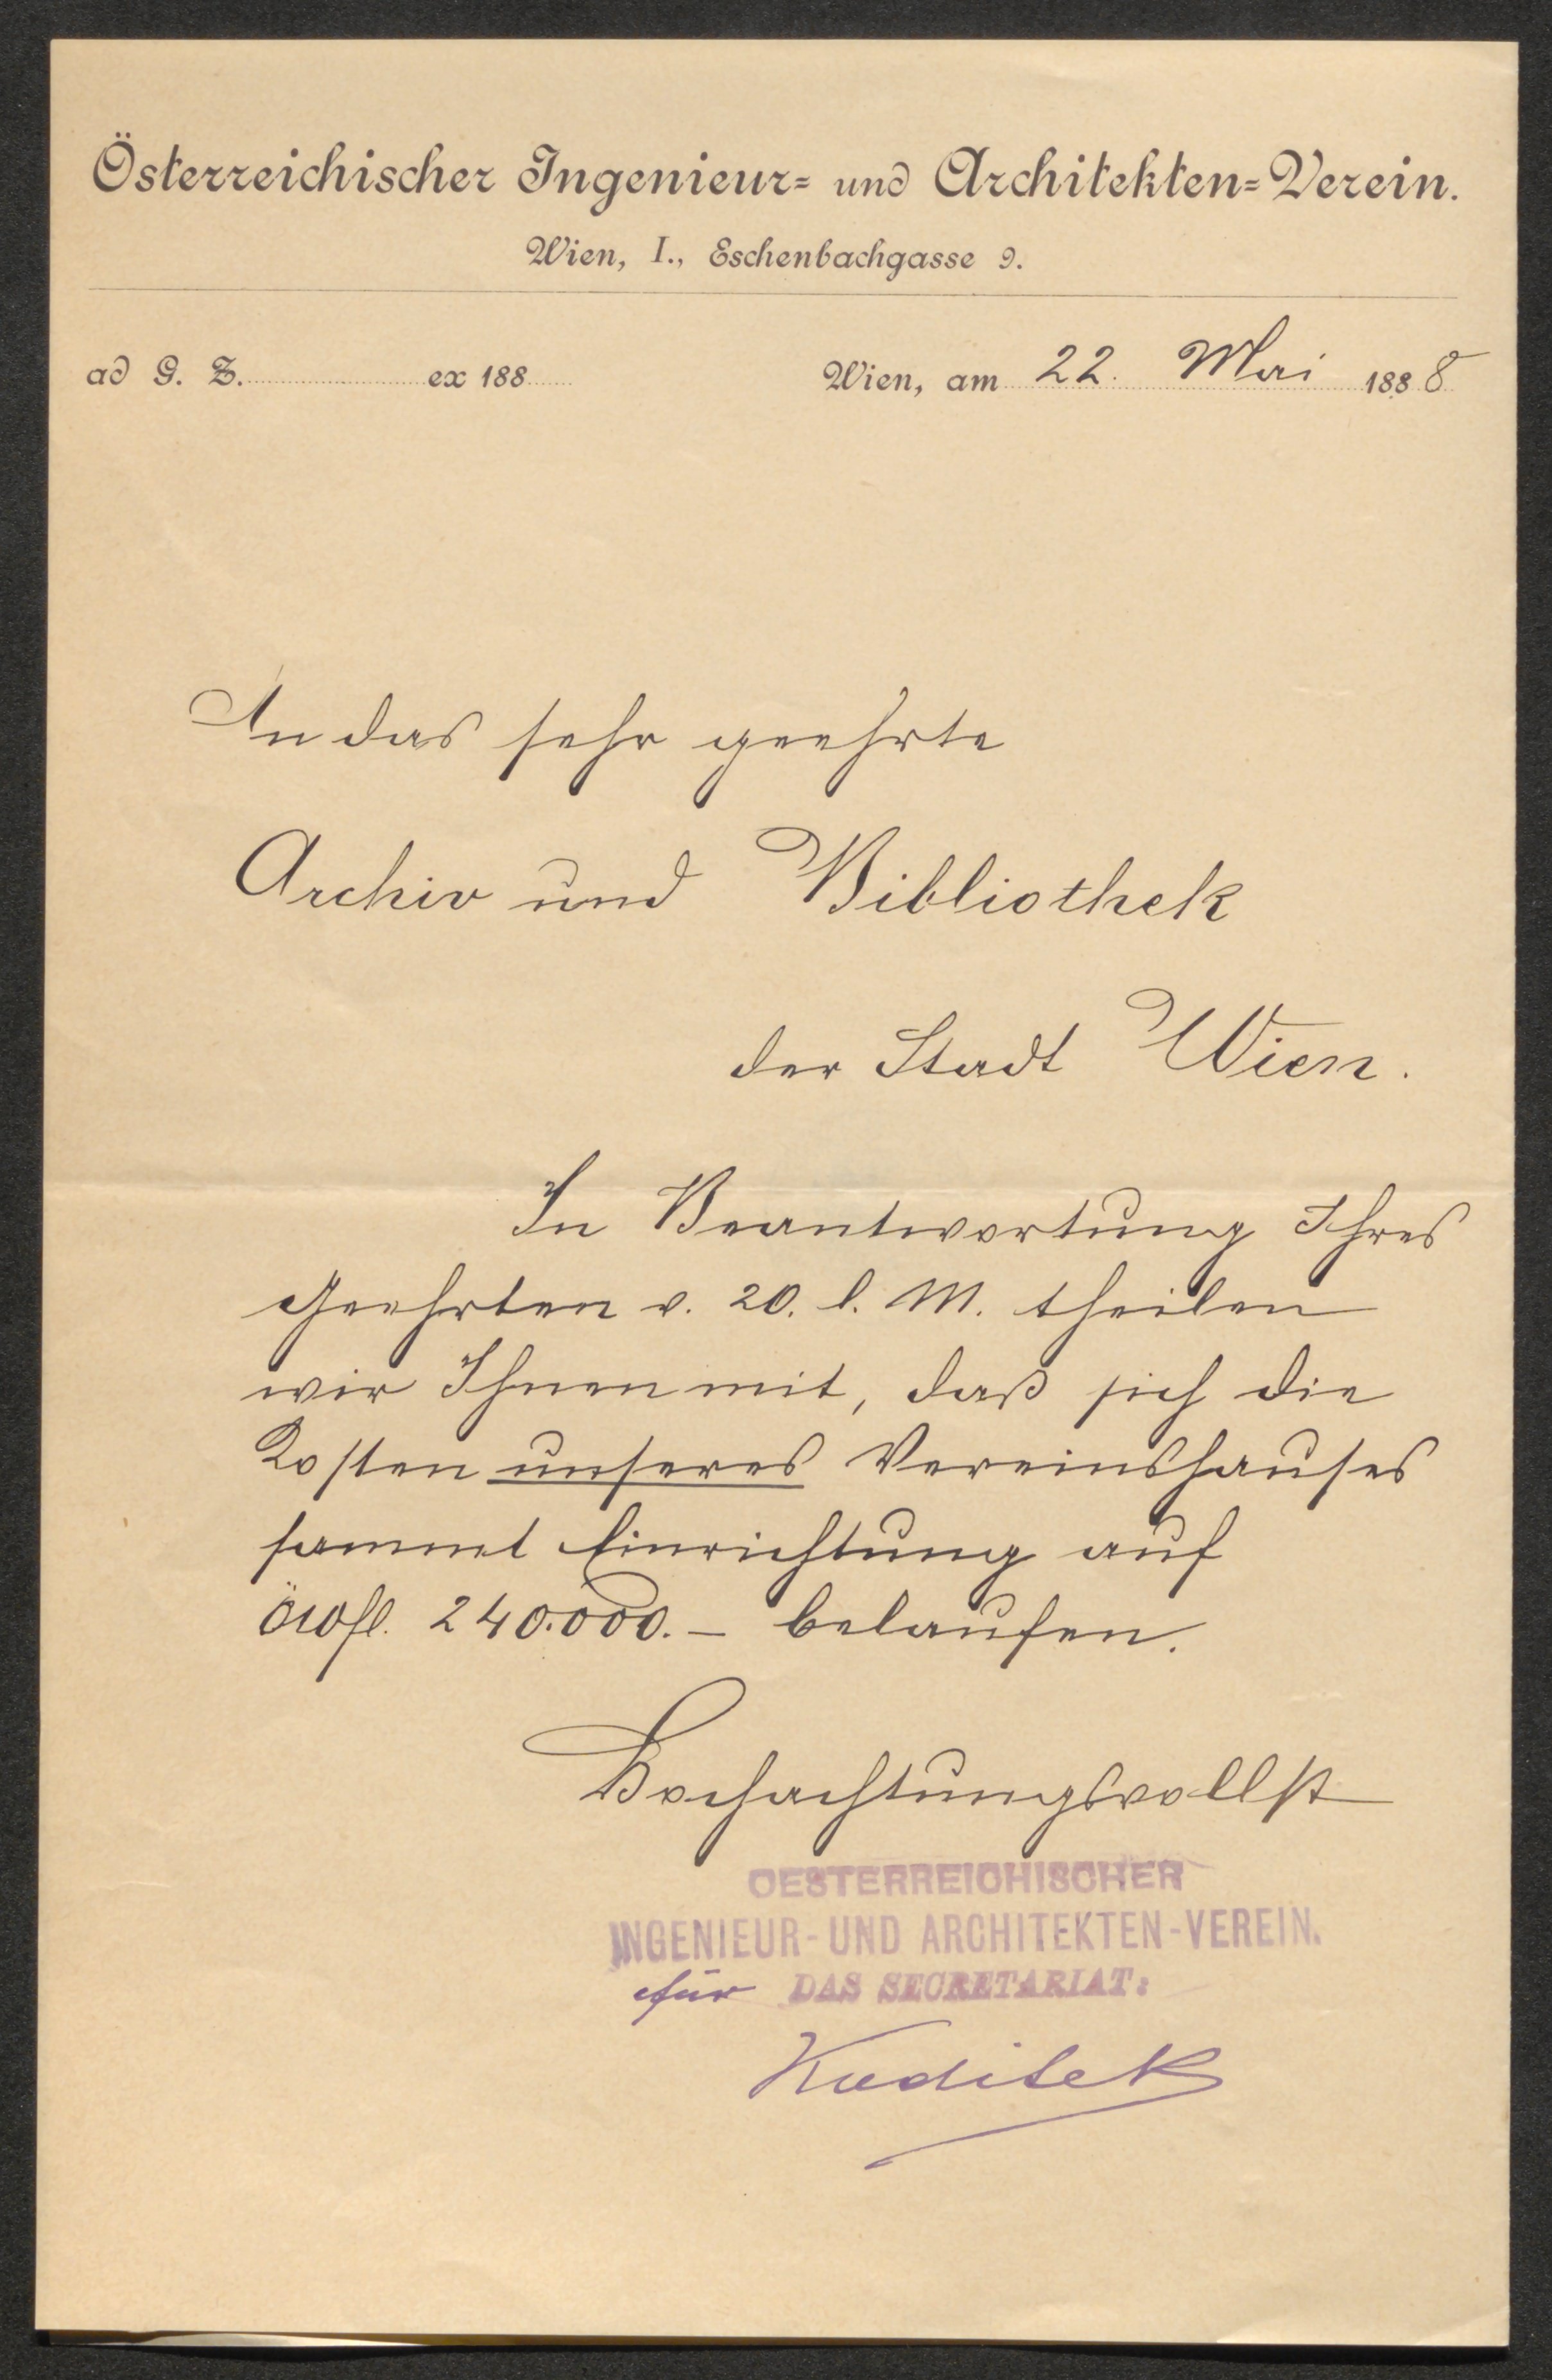 Österreichischer Ingenieur= und Architekten=Verein.
Wien, I., Eschenbachgasse 9.
ad G. Z. ex 188
Wien, am 22. Mai 1888
An das sehr geehrte
Archiv und Bibliothek
der Stadt Wien.
In Beantwortung Ihres
Geehrten v. 20. l. M. theilen
wir Ihnen mit, daß sich die
Kosten unseres Vereinshauses
sammt Einrichtung auf
öwfl. 240.000.– belaufen.
Hochachtungsvollst
OESTERREICHISCHER
INGENIEUR-UND ARCHITEKTEN-VEREIN.
für DAS SECRETARIAT: